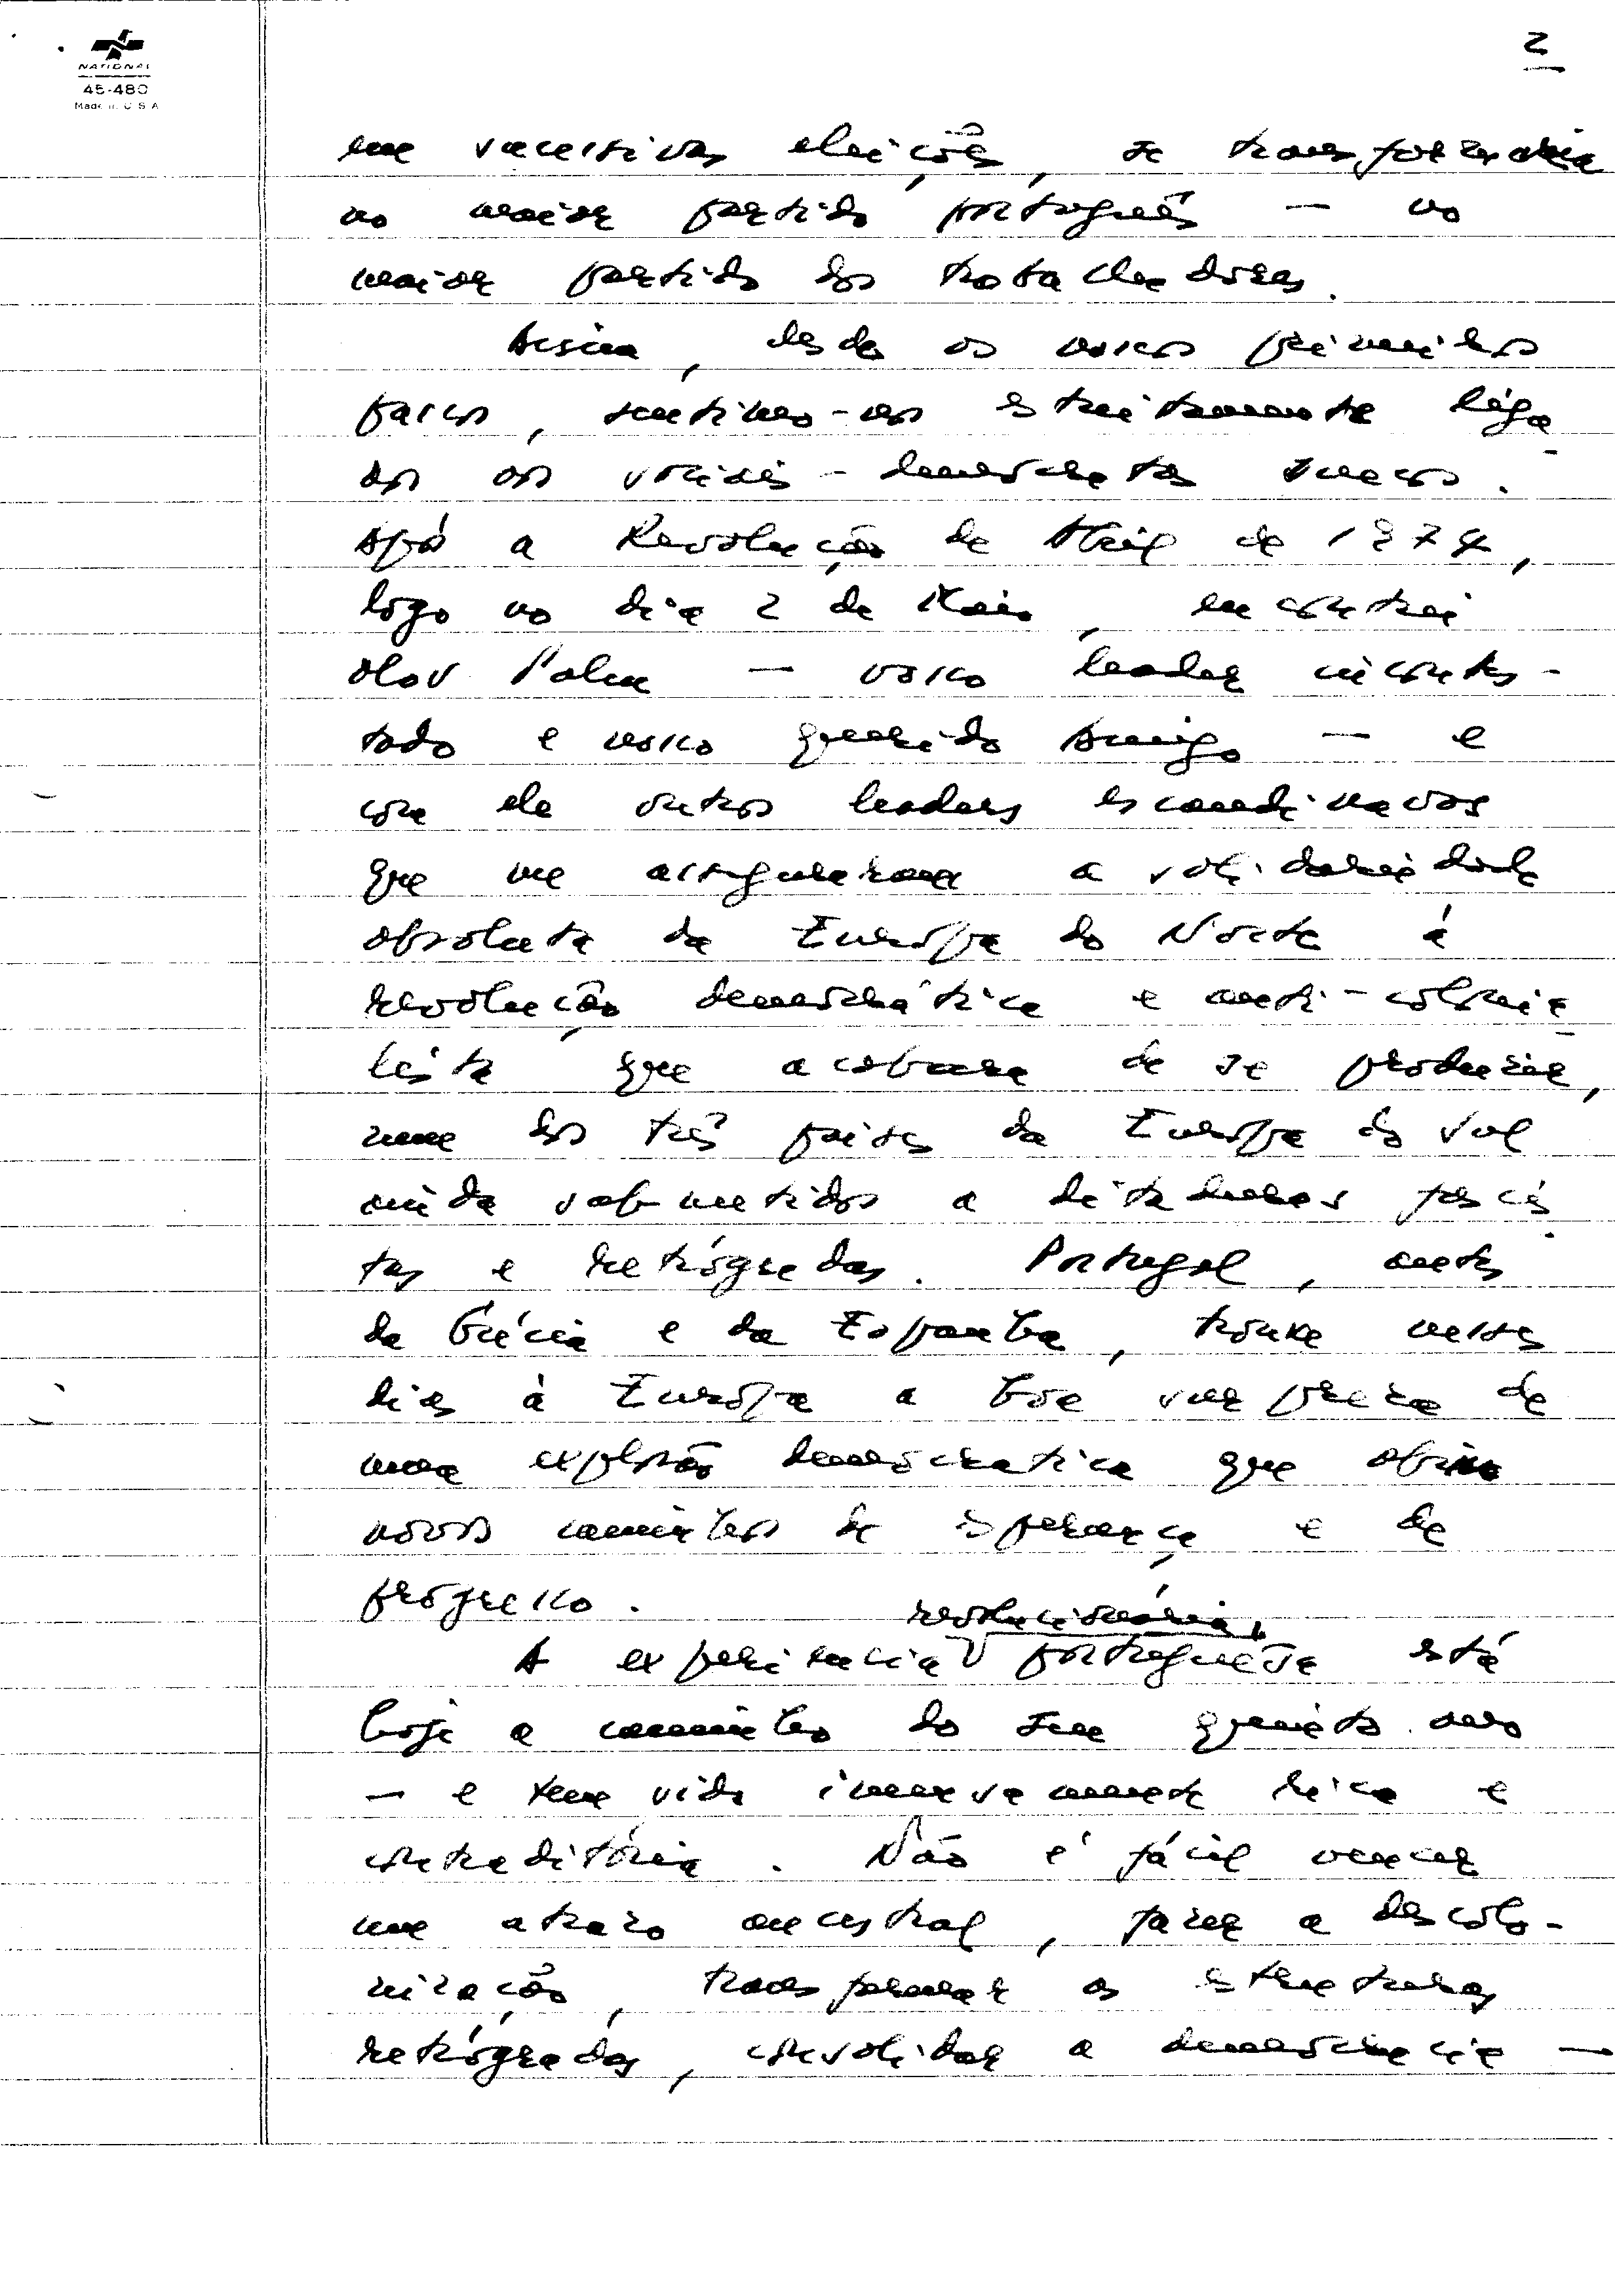 NATIONAL
45-480
Made in U S A
2
em sucessivas eleições, se transformaria
no maior partido português — no
maior partido dos trabalhadores.
Assim, desde os nossos primeiros
passos, sentimo-nos estreitamente liga-
dos aos sociais-democratas suecos.
Após a Revolução de Abril de 1974,
logo no dia 2 de Maio, encontrei
Olov Palme — vosso leader incontes-
tado e nosso querido Amigo — e
com ele outros leaders escandinavos
que me asseguraram a solidariedade
absoluta da Europa do Norte à
revolução democrática e anti-colonia-
lista que acabara de se produzir,
num dos três países da Europa do Sul
ainda submetidos a ditaduras fascis-
tas e retrógradas. Portugal, antes
da Grécia e da Espanha, trouxe nesses
dias à Europa a boa surpresa de
uma explosão democratica que abria
novos caminhos de esperança e de
progresso.
revolucionária
A experiencia portuguesa está
hoje a caminho do seu quinto ano
— e tem sido imensamente rica e
contraditória. Não é fácil vencer
um atrazo ancestral, fazer a descolo-
nização, transformar as estruturas
retrógradas, consolidar a democracia —